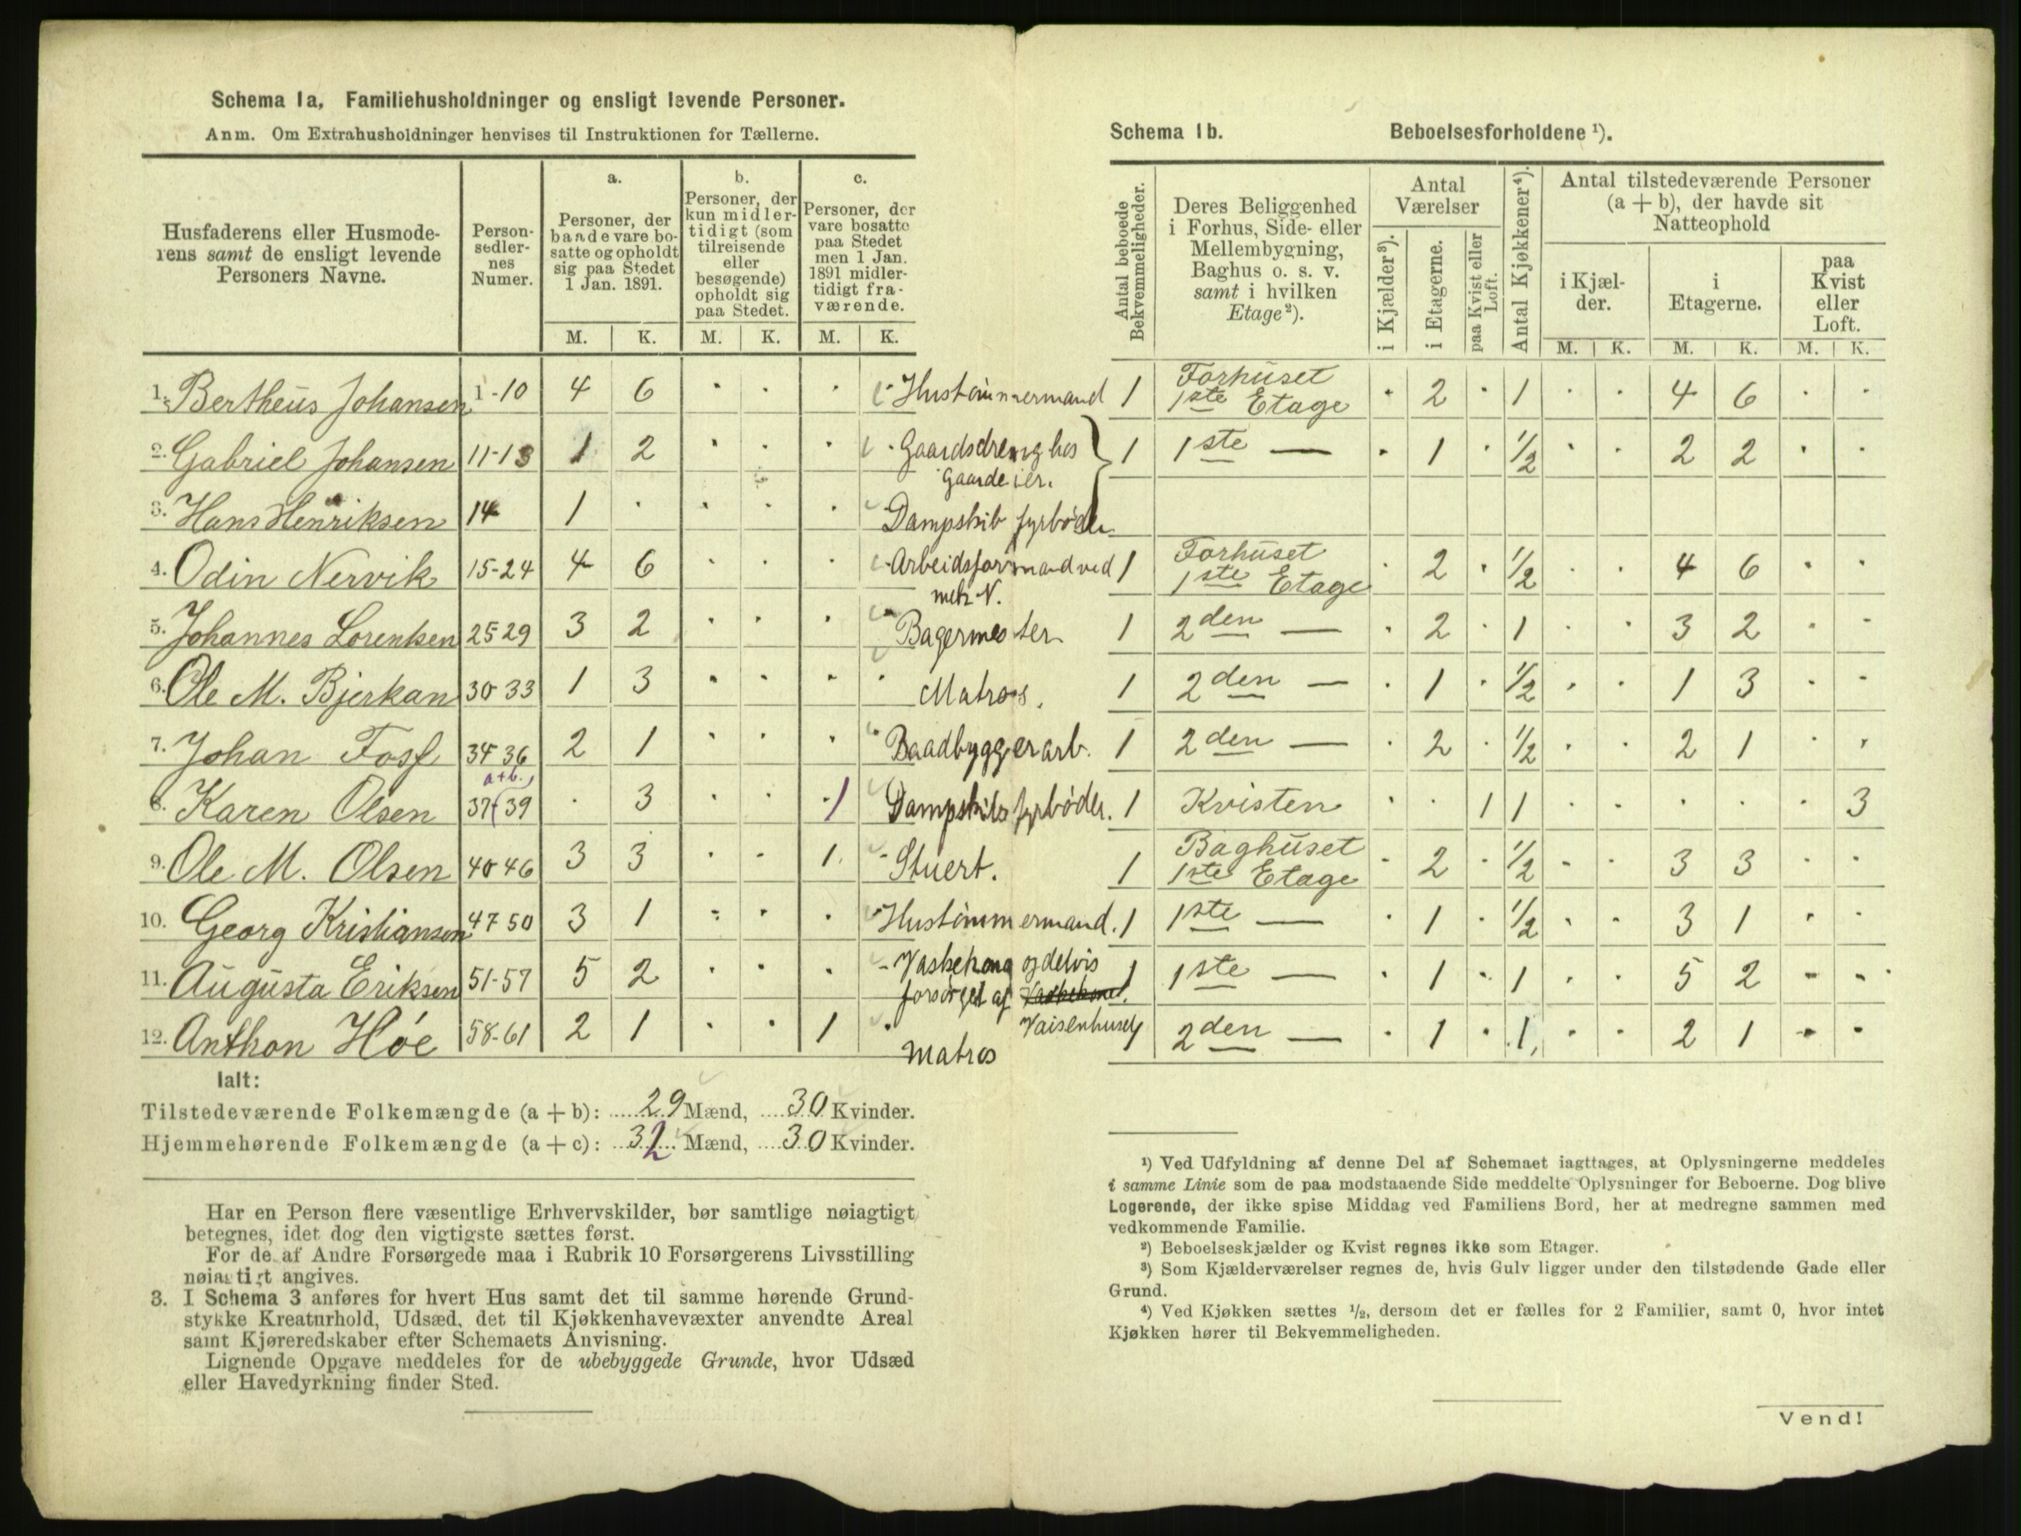 Schema 1a, Familiehusholdninger og ensligt levende Personer.
Anm. Om Extrahusholdninger henvises til Instruktionen for Tællerne.
Husfaderens eller Husmode-
rens samt de ensligt levende
Personers Navne.
Person-
sedler-
nes
Numer.
a.
Personer, der
baade vare bo-
satte og opholdt
sig paa Stedet
1 Jan. 1891.
b.
Personer, der
kun midler-
tidigt (som
tilreisende
eller
besøgende)
opholdt sig
paa Stedet.
c.
Personer, der
vare bosatte
paa Stedet
men 1 Jan.
1891 midler-
tidigt fra-
værende.
M. K. M. K. M. K.
1. Bertheus Johansen 1-10 4 6 · · · · Hustømmermand
2. Gabriel Johansen 11-13 1 2 · · · · Gaardsdreng hos
Gaardeier.
3. Hans Henriksen 14 1 · · · · Dampskib fyrbøder
4. Odin Nervik 15-24 4 6 · · · · Arbeidsformand ved
mek V.
5. Johannes Lorentsen 25 29 3 2 · · · Bagermester
6. Ole M. Bjerkan 30 33 1 3 · · · · Matros.
7. Johan Fosf 34 36 2 1 · · · · Baadbyggerarb.
a+b.
8. Karen Olsen 37 39 · 3 · · 1 Dampskibsfyrbøder.
9. Ole M. Olsen 40 46 3 3 · · 1. Stuert.
10. Georg Kristiansen 47 50 3 1 · · · Hustømmermand.
11. Augusta Eriksen 51-57 5 2 · · · Vaskekong og delvis
forsørget af
Vaisenhuset
12. Anthon Høe 58-61 2 1 · · 1 ·
Matros
Ialt:
Tilstedeværende Folkemængde (a + b): 29 Mænd, 30 Kvinder.
Hjemmehørende Folkemængde (a + c): 32 Mænd, 30 Kvinder.
Har en Person flere væsentlige Erhvervskilder, bør samtlige nøiagtigt
betegnes, idet dog den vigtigste sættes først.
For de af Andre Forsørgede maa i Rubrik 10 Forsørgerens Livsstilling
nøiagtigt angives.
3. I Schema 3 anføres for hvert Hus samt det til samme hørende Grund-
stykke Kreaturhold, Udsæd, det til Kjøkkenhavevæxter anvendte Areal
samt Kjøreredskaber efter Schemaets Anvisning.
Lignende Opgave meddeles for de ubebyggede Grunde, hvor Udsæd
eller Havedyrkning finder Sted.
Schema 1b. Beboelsesforholdene ¹).
Antal beboede
Bekvemmeligheder.
Deres Beliggenhed
i Forhus, Side- eller
Mellembygning,
Baghus o. s. v.
samt i hvilken
Etage²).
Antal
Værelser
i Kjælder³).
i Etagerne.
paa Kvist eller
Loft.
Antal Kjøkkener⁴).
Antal tilstedeværende Personer
(a + b), der havde sit
Natteophold
i Kjæl-
der.
i
Etagerne.
paa
Kvist
eller
Loft.
M. K. M. K. M. K.
1 Forhuset
1ste Etage · 2 · 1 · · 4 6 · ·
1 1ste — · 1 · 1/2 · · 2 2 · ·
1 Forhuset
1ste Etage · 2 · 1/2 · · 4 6 · ·
1 2den — · 2 · 1 · · 3 2 · ·
1 2den — · 1 · 1/2 · · 1 3 · ·
1 2den — · 2 · 1/2 · · 2 1 · ·
1 Kvisten · · 1 1 · · · · · 3
1 Baghuset
1ste Etage · 2 · 1/2 · · 3 3 · ·
1 1ste — · 1 · 1/2 · · 3 1 · ·
1 1ste — · 1 · 1 · · 5 2 · ·
1 2den — · 1 · 1 · · 2 1 · ·
¹) Ved Udfyldning af denne Del af Schemaet iagttages, at Oplysningerne meddeles
i samme Linie som de paa modstaaende Side meddelte Oplysninger for Beboerne. Dog blive
Logerende, der ikke spise Middag ved Familiens Bord, her at medregne sammen med
vedkommende Familie.
²) Beboelseskjælder og Kvist regnes ikke som Etager.
³) Som Kjælderværelser regnes de, hvis Gulv ligger under den tilstødende Gade eller
Grund.
⁴) Ved Kjøkken sættes ½, dersom det er fælles for 2 Familier, samt 0, hvor intet
Kjøkken hører til Bekvemmeligheden.
Vend!